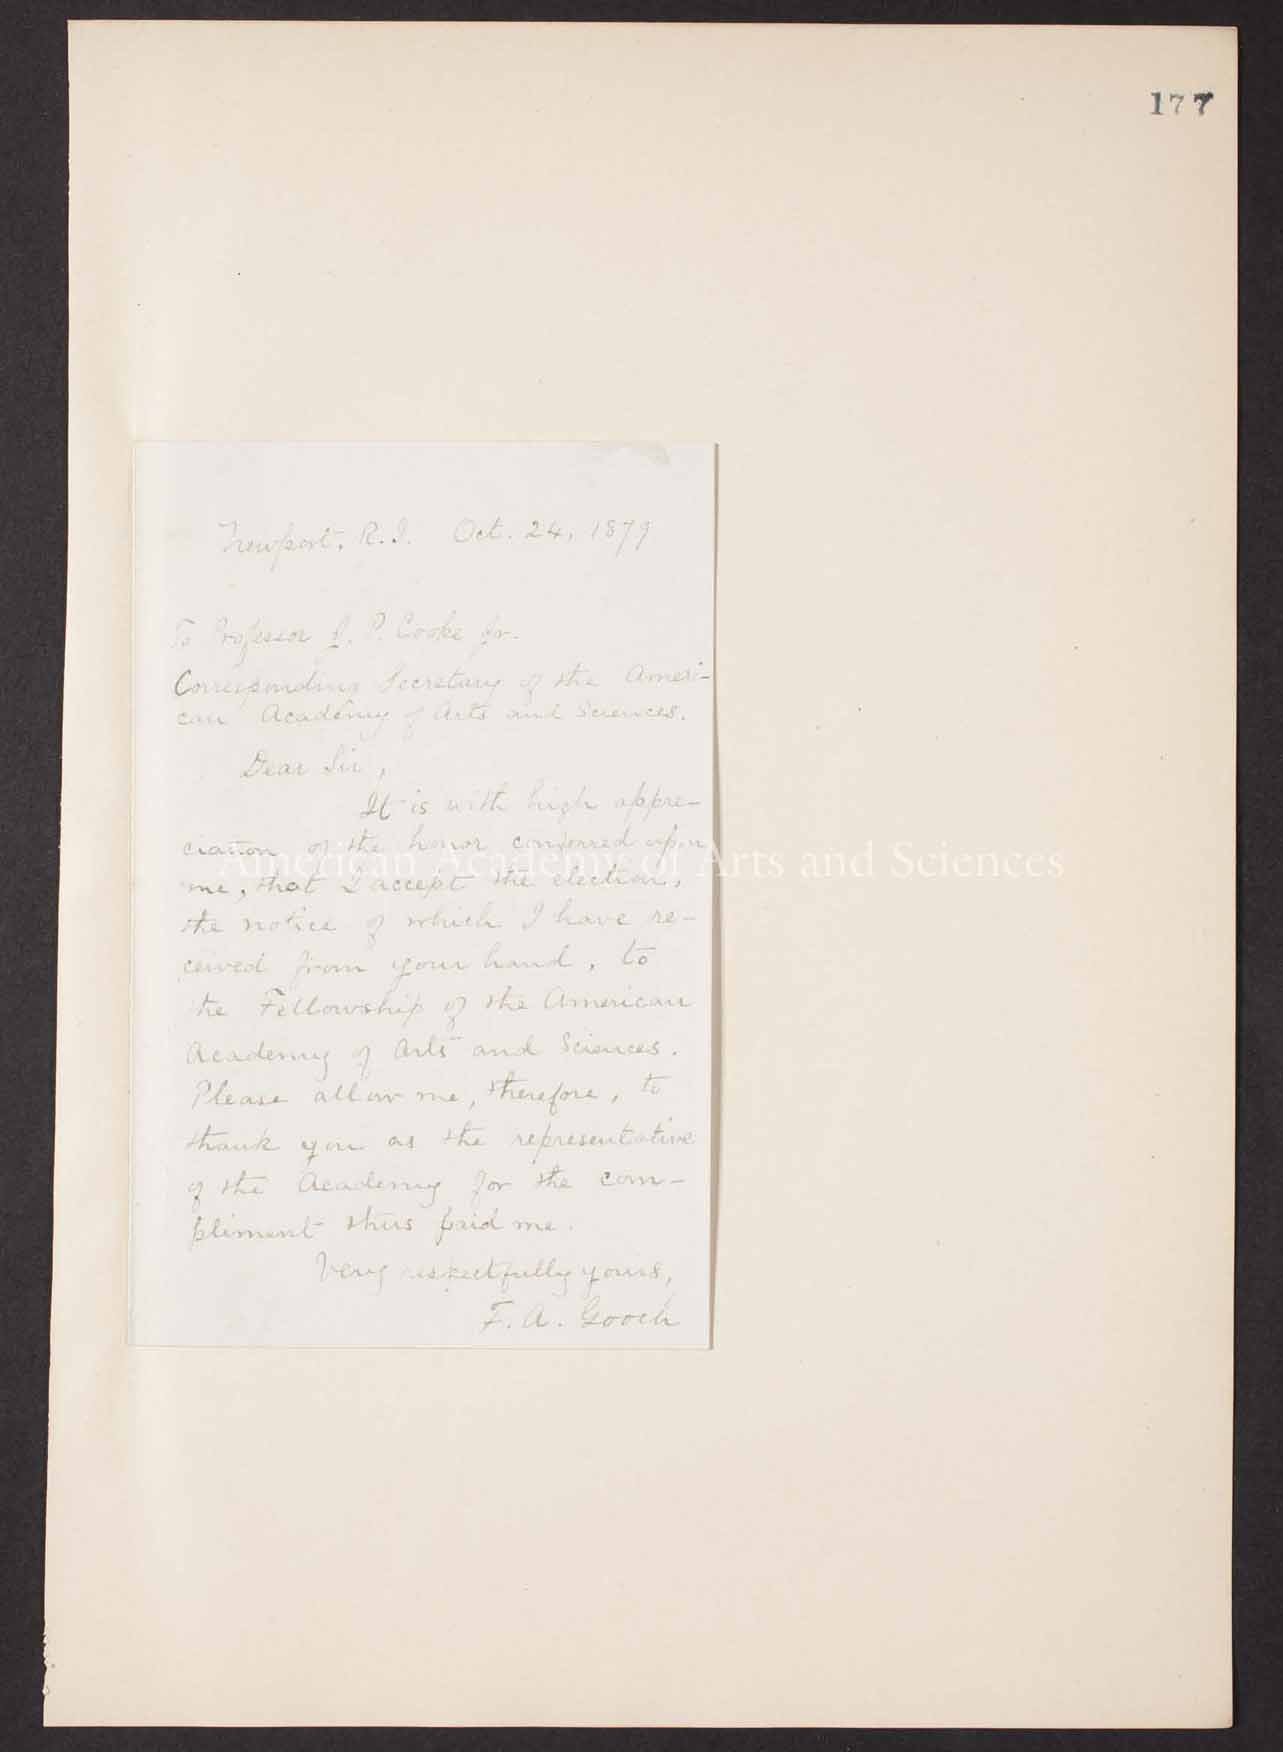 177
Newport, R.I. Oct. 24, 1879
To Professor J. P. Cooke Jr.
Corresponding Secretary of the Ameri-
can Academy of Arts and Sciences.
Dear Sir,
It is with high appre-
ciation of the honor conferred upon
me, that I accept the election,
the notice of which I have re-
ceived from your hand, to
the Fellowship of the American
Academy of Arts and Sciences.
Please allow me, therefore, to
thank you as the representative
of the Academy for the com-
pliment thus paid me.
Very respectfully yours,
F. A. Gooch
American Academy of Arts and Sciences